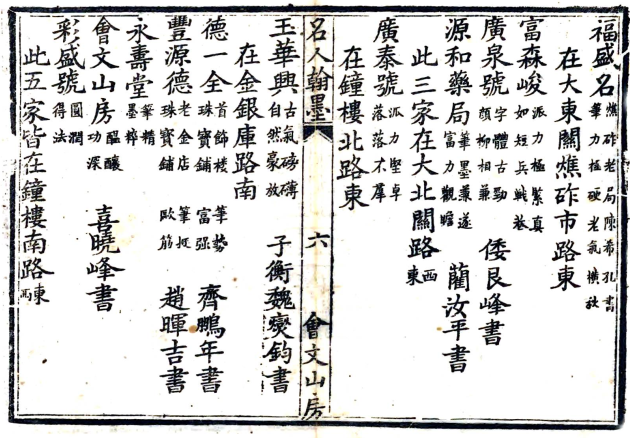 福盛名 燋砟老局陳希孔書 筆力極硬老氣橫秋
在大東關燋砟市路東
富森峻 派力極緊真 如短兵戰巷
廣泉號 字體古勁 顏柳相兼 倭艮峰書
源和藥局 筆墨兼遂 富力觀瞻 藺汝平書
此三家在大北關路西東
廣泰號 派力堅卓 落落不羣
在鐘樓北路東
名人翰墨 六 會文山房
玉華興 古氣磅礴 自然豪放 子衡魏燮鈞書
在金銀庫路南
德一全 首飾樓 珠寶鋪 筆勢 富强 齊鵬年書
豐源德 老金店 珠寶鋪 筆 歐筋 趙暉吉書
永壽堂 筆精 墨粹
會文山房 醖釀 功深 喜曉峰書
彩盛號 圓潤 得法
此五家皆在鐘樓南路東西